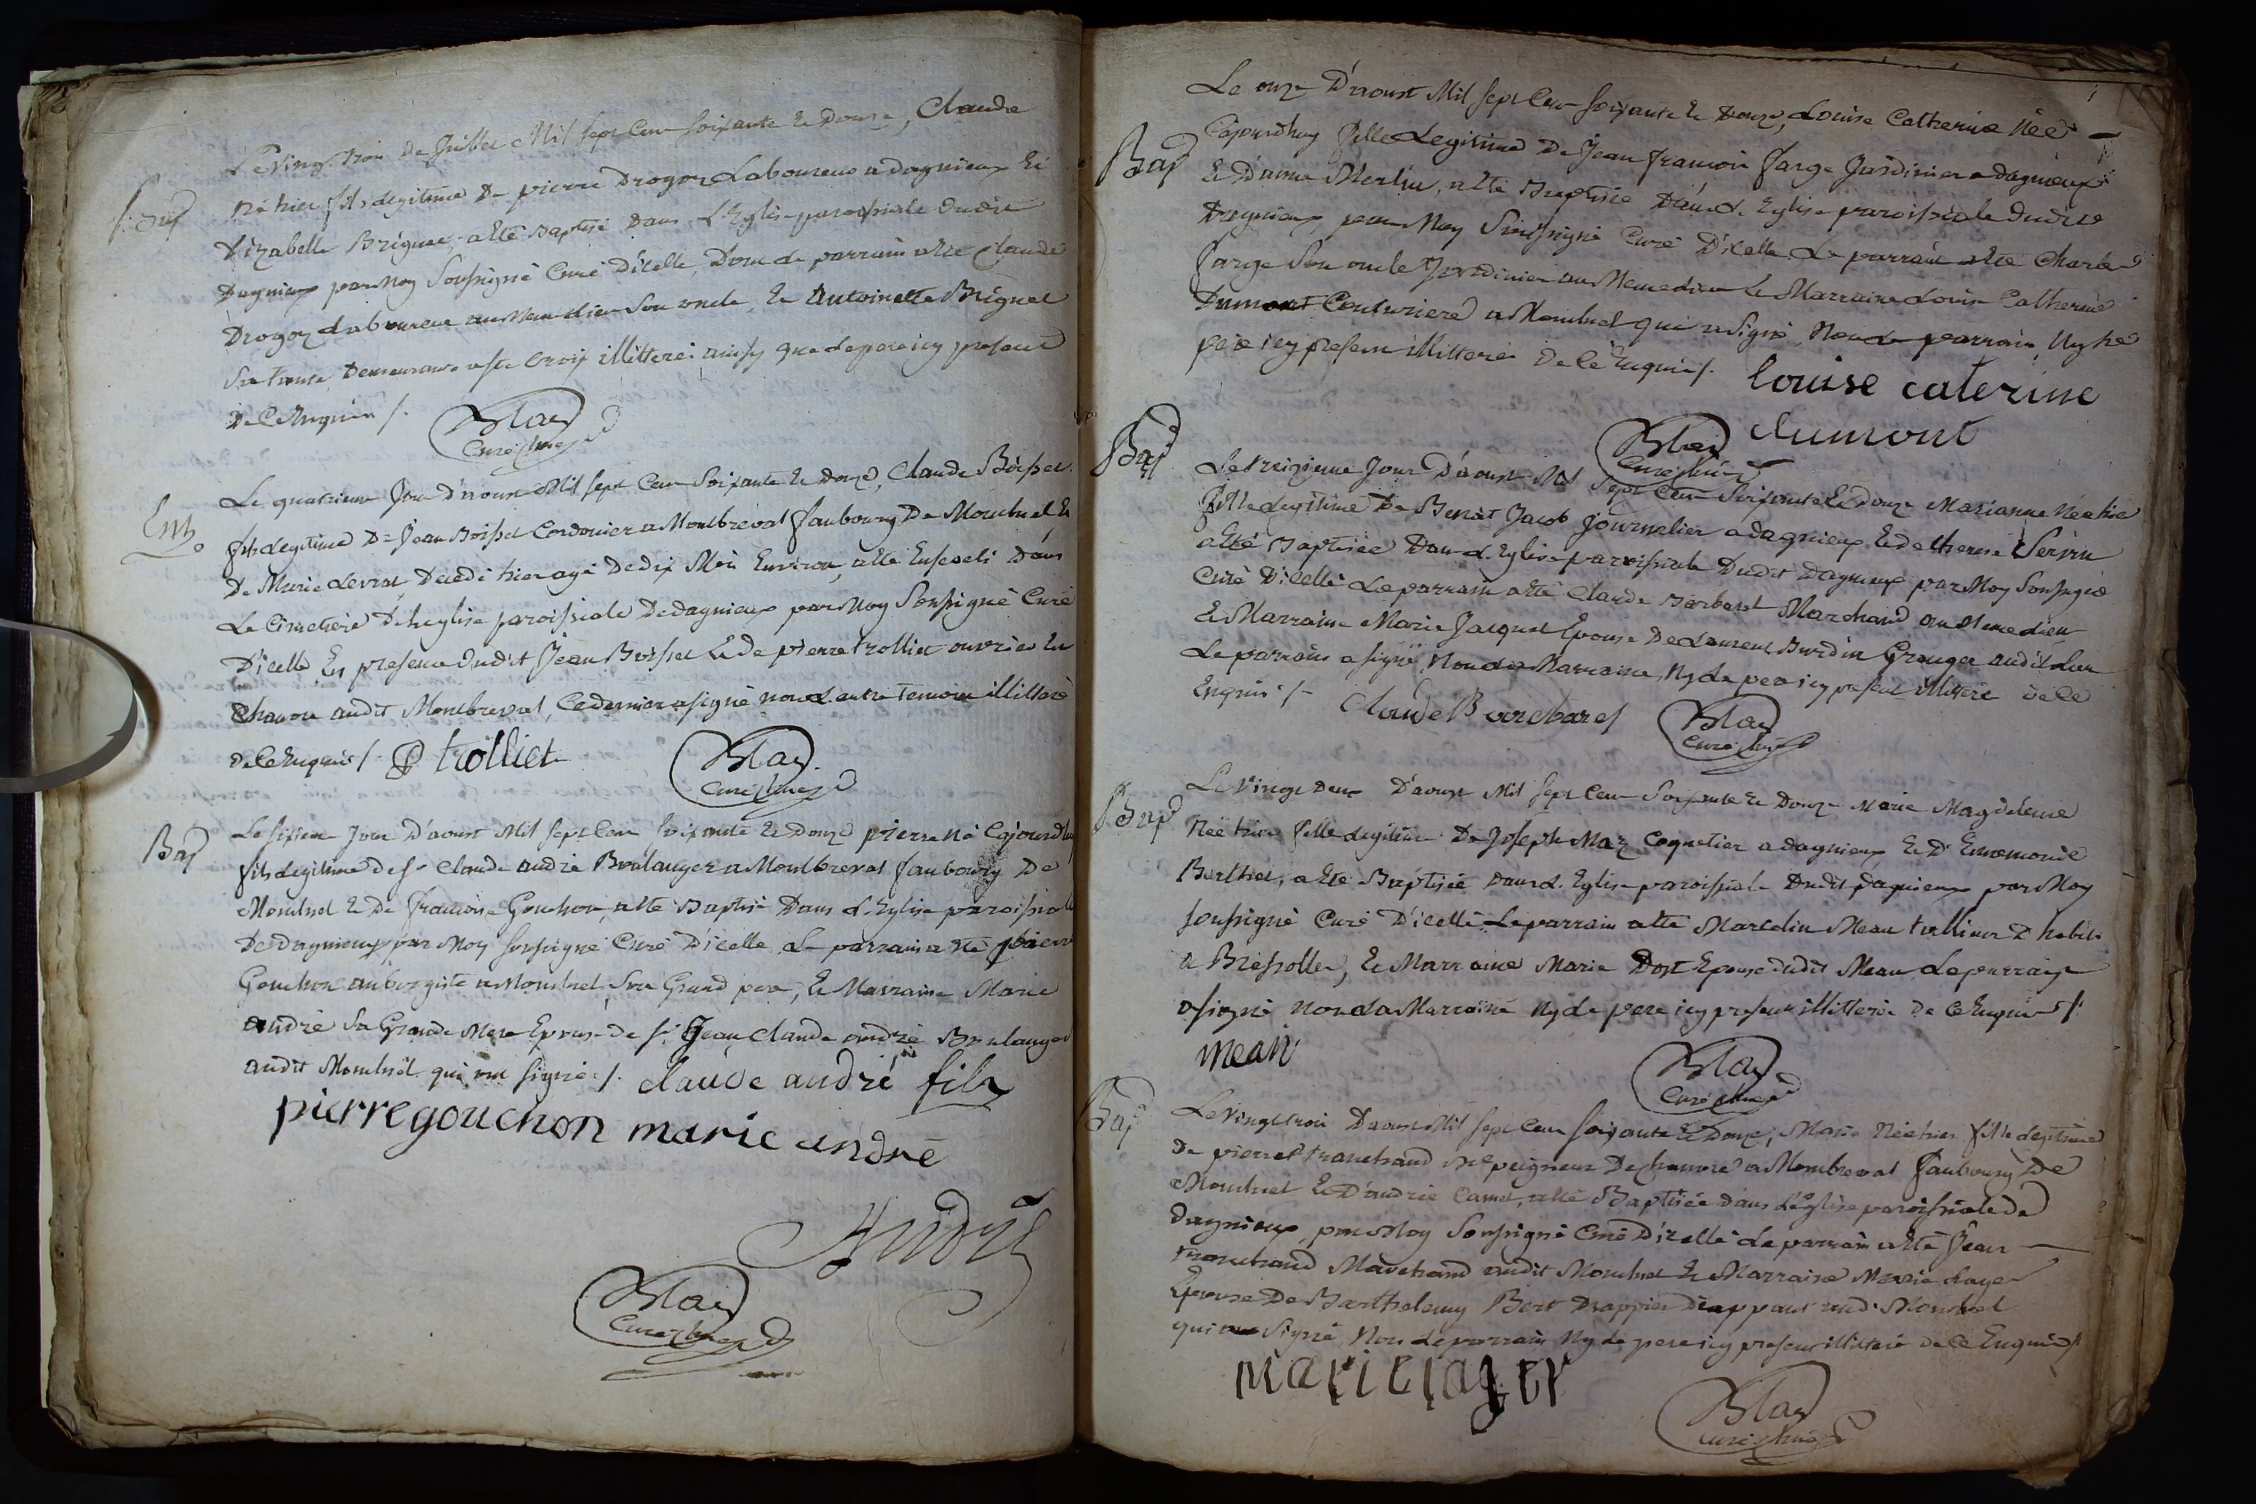 Le vingt trois de Juillet Mil sept Cent soixante Et Douze, Claude
Bap
Né hier fils Legitime De pierre Drogoz Laboureur a dagnieux Et
Elizabelle Briguet, a Eté Baptisé dans L'Eglise paroissiale dudit
Dagnieux par Moy Soussigné Curé D'icelle, Dont Le parrain a Eté Claude
Drogoz Laboureur au Meme lieu Son oncle, Et Antoinette Briguet
Sa tante Demeurant a Ste Croix illitteré ainsy que Le pere icy present
De Ce Enquis /.
Blay
Curé
Ent
Le quatrieme Jour D'aoust Mil sept Cent Soixante Et Douze, Claude Boisset
fils Legitime De Jean Boisset Cordonier a Montbreval faubourg De Montluel Et
De Marie Levrat Decedé hier agé De dix Mois Environ, a Eté Enseveli Dans
Le Cimetiere De L'Eglise paroissiale De dagnieux par Moy Soussigné Curé
D'icelle En presence Dudit Jean Boisset Et De pierre trolliet ouvrier En
Chanvre audit Montbreval, Ce dernier a signé non L'autre Temoin illitteré
de Ce Enquis /. P trolliet
Blay
Curé
Bap
Le sixieme Jour D'aoust Mil sept Cent soixante Et Douze pierre Né Cejourdhuy
fils Legitime de sr Claude andré Boulanger a Montbreval faubourg De
Montluel Et De francoise Gouchon, a Eté Baptisé Dans L'Eglise paroissiale
De Dagnieux par Moy soussigné Curé D'icelle Le parrain a Eté pierre
Gouchon aubergiste a Montluel, Son Grand pere, Et Marraine Marie
andré Sa Grande Mere Epouse de sr Jean Claude andré Boulanger
audit Montluel qui ont signé /. claude andré fils
pierre gouchon marie andré
André
Blay
Curé
Le onze D'aoust Mil sept Cent soixante Et Douze, Louise Catherine Née
Bap
Cejourdhuy fille Legitime De Jean francois farge Jardinier a dagnieux
Et D'anne Merlin, a Eté Baptisée Dans L'Eglise paroissiale dudit
Dagnieux, par Moy Soussigné Curé D'icelle Le parrain a Eté Charles
farge Son oncle Jardinier au Meme lieu Et Marraine Louise Catherine
Dumont Couturiere a Montluel qui a Signé, Non Le parrain Ny Le
pere icy present illitteré De Ce Enquis /.
louise caterine
dumont
Blay
Curé
Bap
Le treizieme Jour D'aoust Mil Sept Cent Soixante Et Douze Marianne Née hier
fille Legitime De Benoit Jacob Journalier a dagnieux Et de therese Servin
a Eté Baptisée Dans L'Eglise paroissiale Dudit Dagnieux par Moy Soussigné
Curé D'icelle Le parrain a Eté Claude Barbaret Marchand au Meme lieu
Et Marraine Marie Jacquet Epouse De Laurent Burdin Granger audit lieu
Le parrain a signé Non La Marraine, Ny Le pere icy present illitteré de Ce
Enquis /. Claude Barbaret
Blay
Curé
Le vingt Deux D'aoust Mil sept Cent Soixante Et Douze Marie Magdeleine
Bap
Née hier fille Legitime De Joseph Maz Coquetier a dagnieux Et D'Ennemonde
Berthet, a Eté Baptisée dans L'Eglise paroissiale Dudit dagnieux par Moy
soussigné Curé D'icelle Le parrain a Eté Marcelin Mean habit
a Bressolles, Et Marraine Marie Dost Epouse dudit Mean Le parrain
a signé non La Marraine Ny Le pere icy present illitteré de Ce Enquis /.
mean
Blay
Curé
Bap
Le vingt trois D'aoust Mil sept Cent soixante Et Douze, Marie Née hier fille Legitime
De pierre tranchand Me peigneur De chanvre a Montbreval faubourg De
Montluel Et D'andrée Camet, a Eté Baptisée dans L'Eglise paroissiale De
Dagnieux, par Moy Soussigné Curé D'icelle Le parrain a Eté Jean
tranchand Marchand audit Montluel Et Marraine Marie Layer
Epouse De Barthelemy Bert Drappier Drappant aud. Montluel
qui a Signé Non Le parrain Ny Le pere icy present illitteré de Ce Enquis /.
marie layer
Blay
Curé